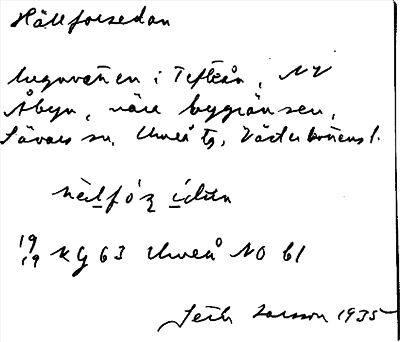 Hällforsedan
lugnvatten i Tefteån, NV
Åbyn, nära bygränsen,
Sävars sn, Umeå tg, Västerbottens l.
19/19 KG 63 Umeå NO bl
Larsson 1935